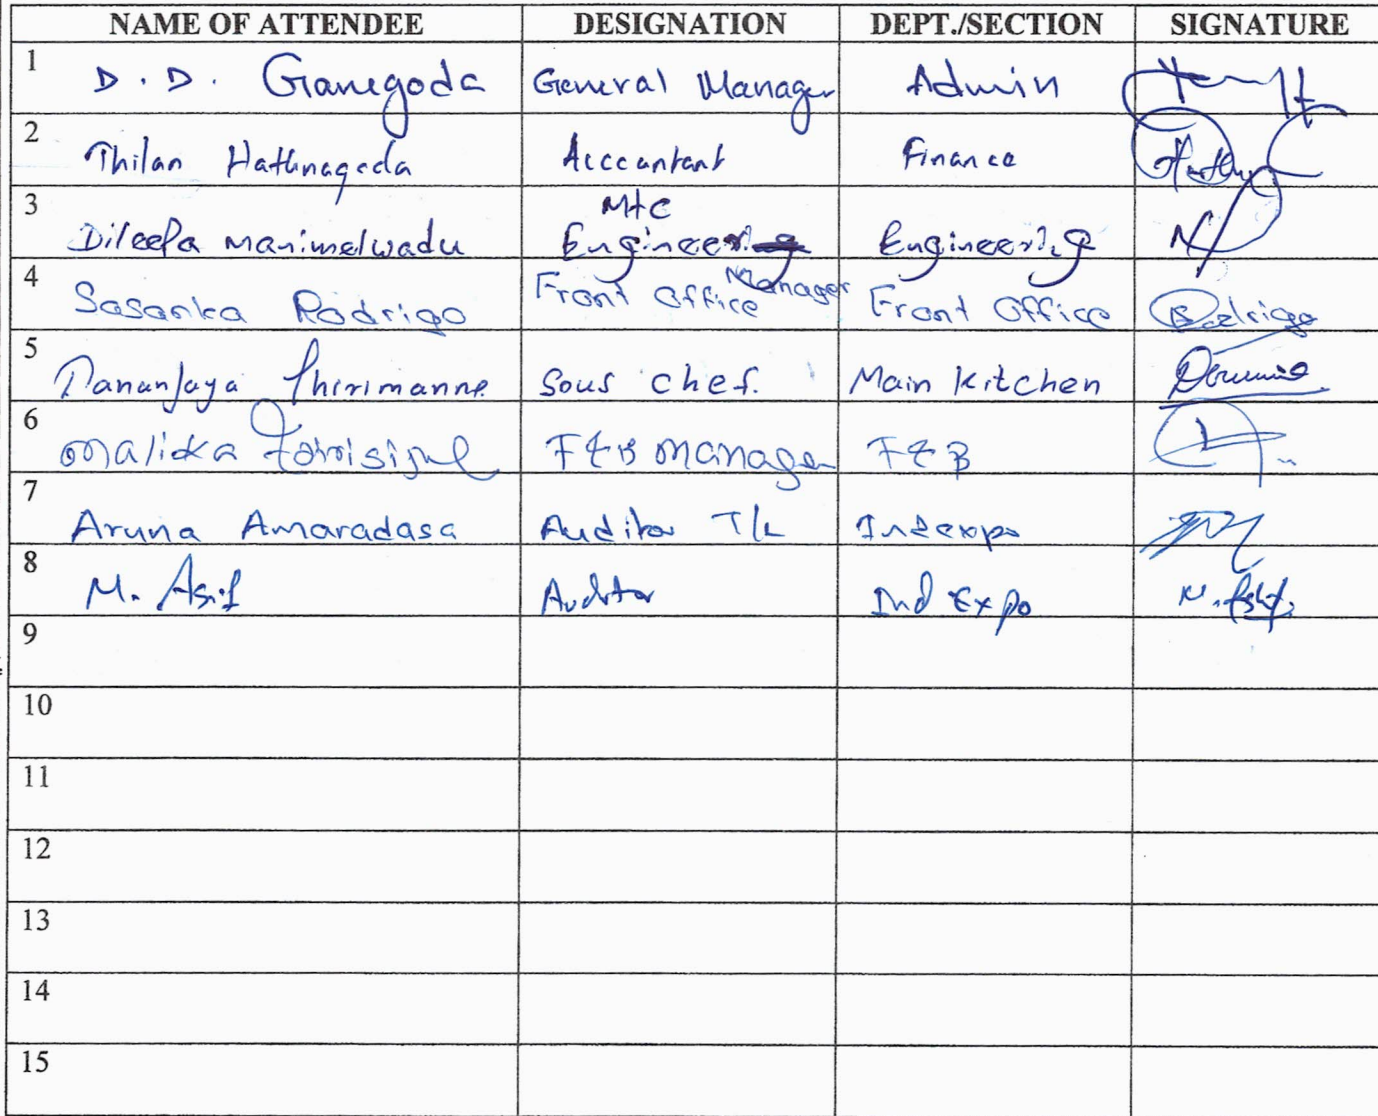 NAME OF ATTENDEE DESIGNATION DEPT./SECTION SIGNATURE
1 D. D. Ganegoda General Manager Admin
2 Thilan Hathnagoda Accountant Finance
3 Dileepa Manimelwadu Mtc Engineer Engineering
4 Sasanka Rodrigo Front Office Manager Front Office Rodrigo
5 Dananjaya Thirimanne Sous chef. Main Kitchen
6 Malika F&B Manager F&B
7 Aruna Amaradasa Auditor T/L Indexpo
8 M. Asif Auditor Ind Expo M. Asif
9
10
11
12
13
14
15